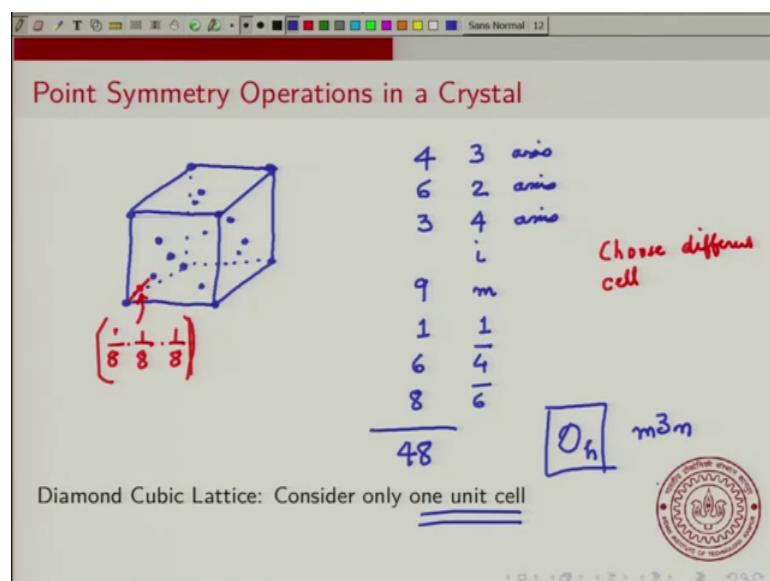 Sans Normal 12
Point Symmetry Operations in a Crystal
4 3 axis
6 2 axis
3 4 axis
i
9 m
1 1
6 4̅
8 6̅
48
Choose different
cell
(1/8 · 1/8 · 1/8)
O_h m3m
Diamond Cubic Lattice: Consider only one unit cell